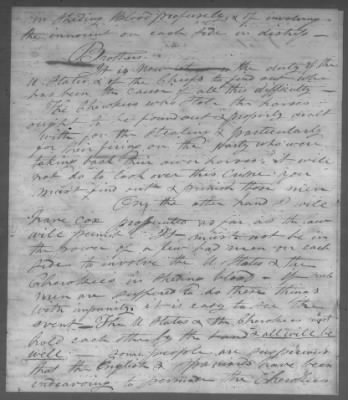 in sheding blood profusely, & of involving
the innocent on each side in distress —
Brothers —
It is now the duty of the
U. States & of the Chiefs to find out who
has been the cause of all this difficulty —
The Cherokees who stole the horses
ought to be found out & properly dealt
with for the stealing & particularly
for their firing on the party who were
taking back their own horses; it will
not do to look over this crime you
must find out & punish those men
On the other hand I will
have Cox prosecuted as far as the law
will permit — It must not be in
the power of a few bad men on each
side to involve the U States & the
Cherokees in sheding blood — If such
men are suffered to do these things
with impunity it is easy to see the
event — The U States & the Cherokees must
hold each other by the hand & all will be
well — some people are suspicious
that the English & Spaniards have been
endeavoring to persuade the Cherokees